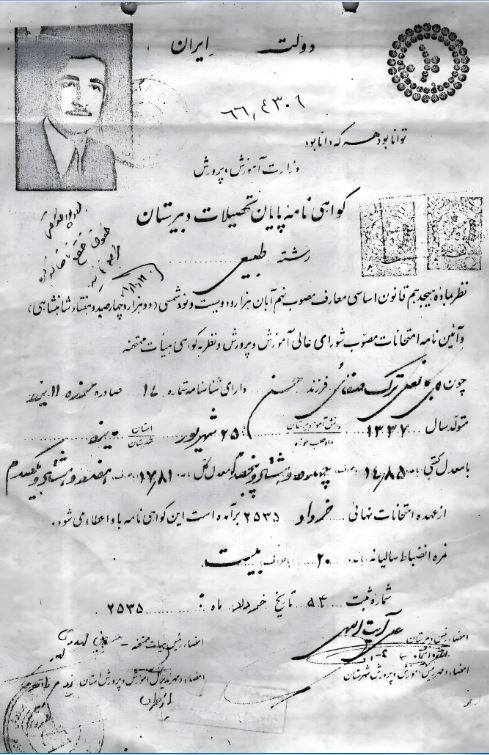 دولت ایران
۶۶،۴۳۰۱
توانا بود هر که دانا بود
وزارت آموزش و پرورش
گواهی نامه پایان تحصیلات دبیرستان
رشته طبیعی
نظر بماده هیجدهم قانون اساسی معارف مصوب نهم آبان هزار و دویست و نود شمسی (دو هزار و چهارصد و هفتاد شاهنشاهی)
و آئین نامه امتحانات مصوب شورای عالی آموزش و پرورش و نظر به گواهی هیأت ممتحنه
چون فرزند حسن دارای شناسنامه شماره ۱۷ صادره
متولد سال ۱۳۳۷ دانش آموز دبیرستان داوطلب حوزه ۲۵ شهریور استان شهرستان یزد
با معدل کتبی ۱۴/۸۵ چهارده و هشتاد و پنج صدم و معدل کل ۱۷/۸۱ هفده و هشتاد و یکصدم
از عهده امتحانات نهائی خرداد ۲۵۳۵ برآمده است این گواهی نامه باو اعطاء می شود.
نمره انضباط سالیانه ۲۰ بیست
شماره ثبت ۵۴ تاریخ خرداد ماه ۲۵۳۵
امضاء رئیس دبیرستان
امضاء رئیس هیأت ممتحنه
امضاء و مهر رئیس آموزش و پرورش شهرستان
امضاء و مهر مدیر کل آموزش و پرورش استان